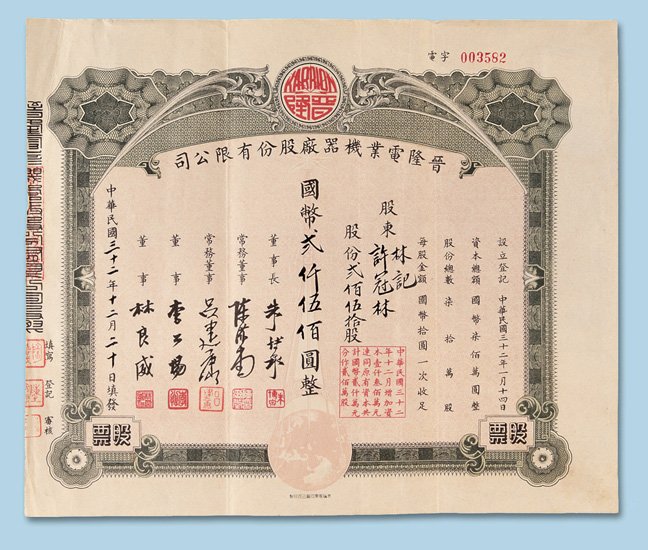 電字 003582
KARRION
晉隆
晉隆電業機器廠股份有限公司
設立登記 中華民國三十二年一月十四日
資本總額 國幣柒佰萬圓整
股份總數 柒拾萬股
每股金額 國幣拾圓一次收足
股東 林記 許冠林
股份貳佰伍拾股
中華民國三十二
年十二月增加資
本壹仟叁佰萬元
連同原有資本共
計國幣貳仟萬元
合作貳佰萬股
國幣貳仟伍佰圓整
董事長
常務董事
常務董事 吳建康
董事
董事 林良威
中華民國三十二年十二月二十日填發
填寫 登記 審核
股票
股票